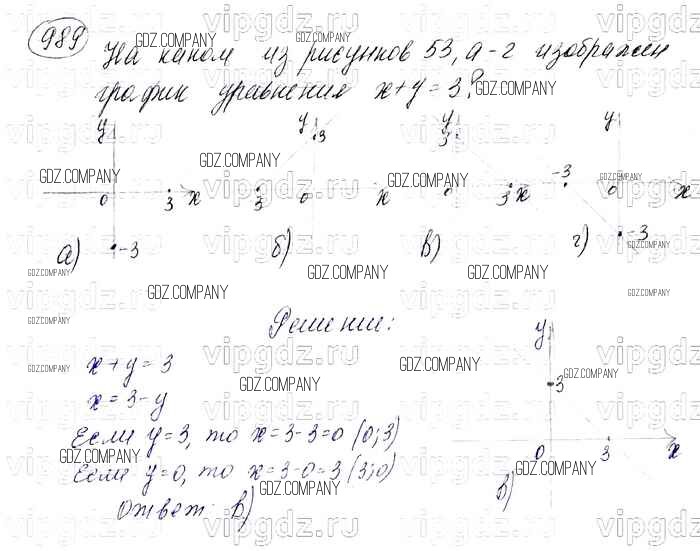 989 На каком из рисунков 53, а-г изображен
график уравнения x+y=3?
y y y y
3 3
-3
0 3 x 3 0 x 0 3 x 0 x
-3 -3
а) б) в) г)
Решение:
x+y=3
x=3-y
Если y=3, то x=3-3=0 (0;3)
Если y=0, то x=3-0=3 (3;0)
Ответ: в)
y
3
0 3 x
в)
GDZ.COMPANY
vipgdz.ru